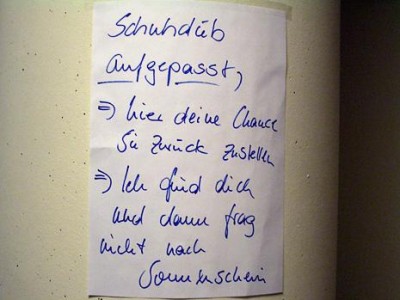 Schuhdieb
aufgepasst,
=> hier deine Chance
Sie zurück zustellen
=> Ich find dich
und dann frag
nicht nach
Sonnenschein